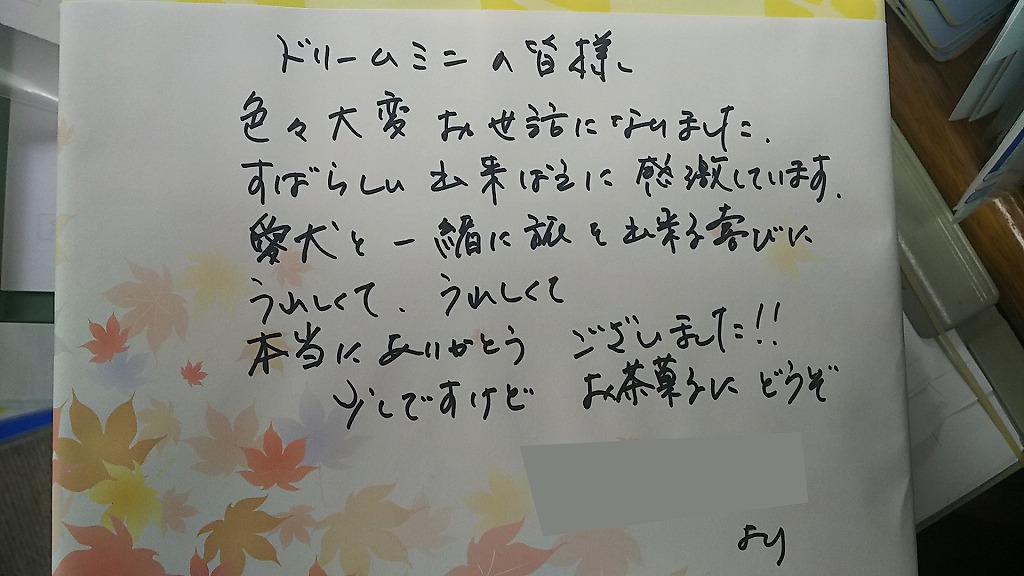 ドリームミニの皆様、
色々大変お世話になりました.
すばらしい出来ばえに感激しています.
愛犬と一緒に旅を出来る喜びに
うれしくて、うれしくて
本当にありがとう ございました!!
少しですけど お茶菓子に どうぞ
より